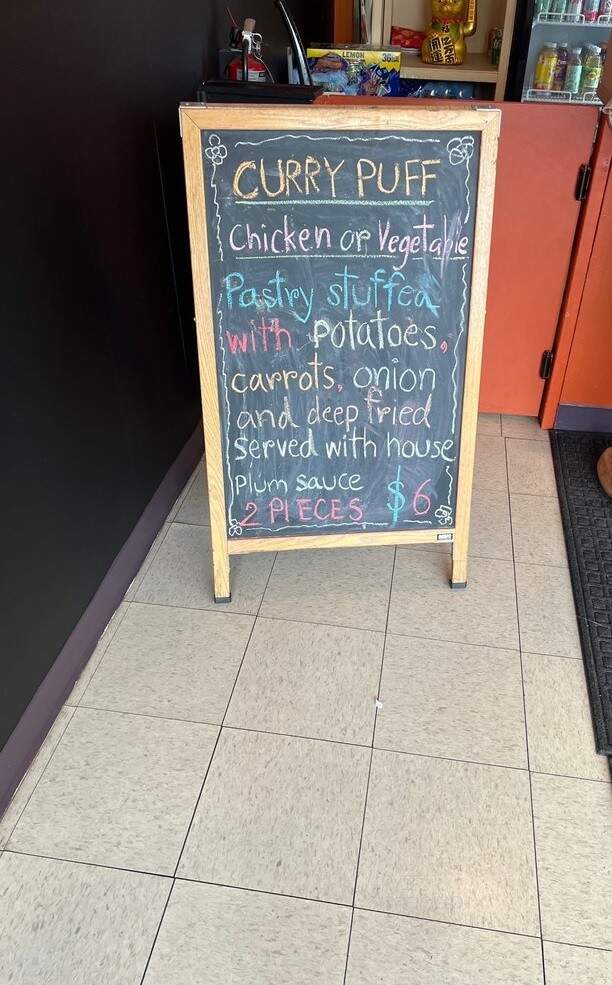 LEMON 36
CURRY PUFF
Chicken or Vegetable
Pastry stuffed
with potatoes,
carrots, onion
and deep fried
served with house
Plum sauce
2 PIECES $6